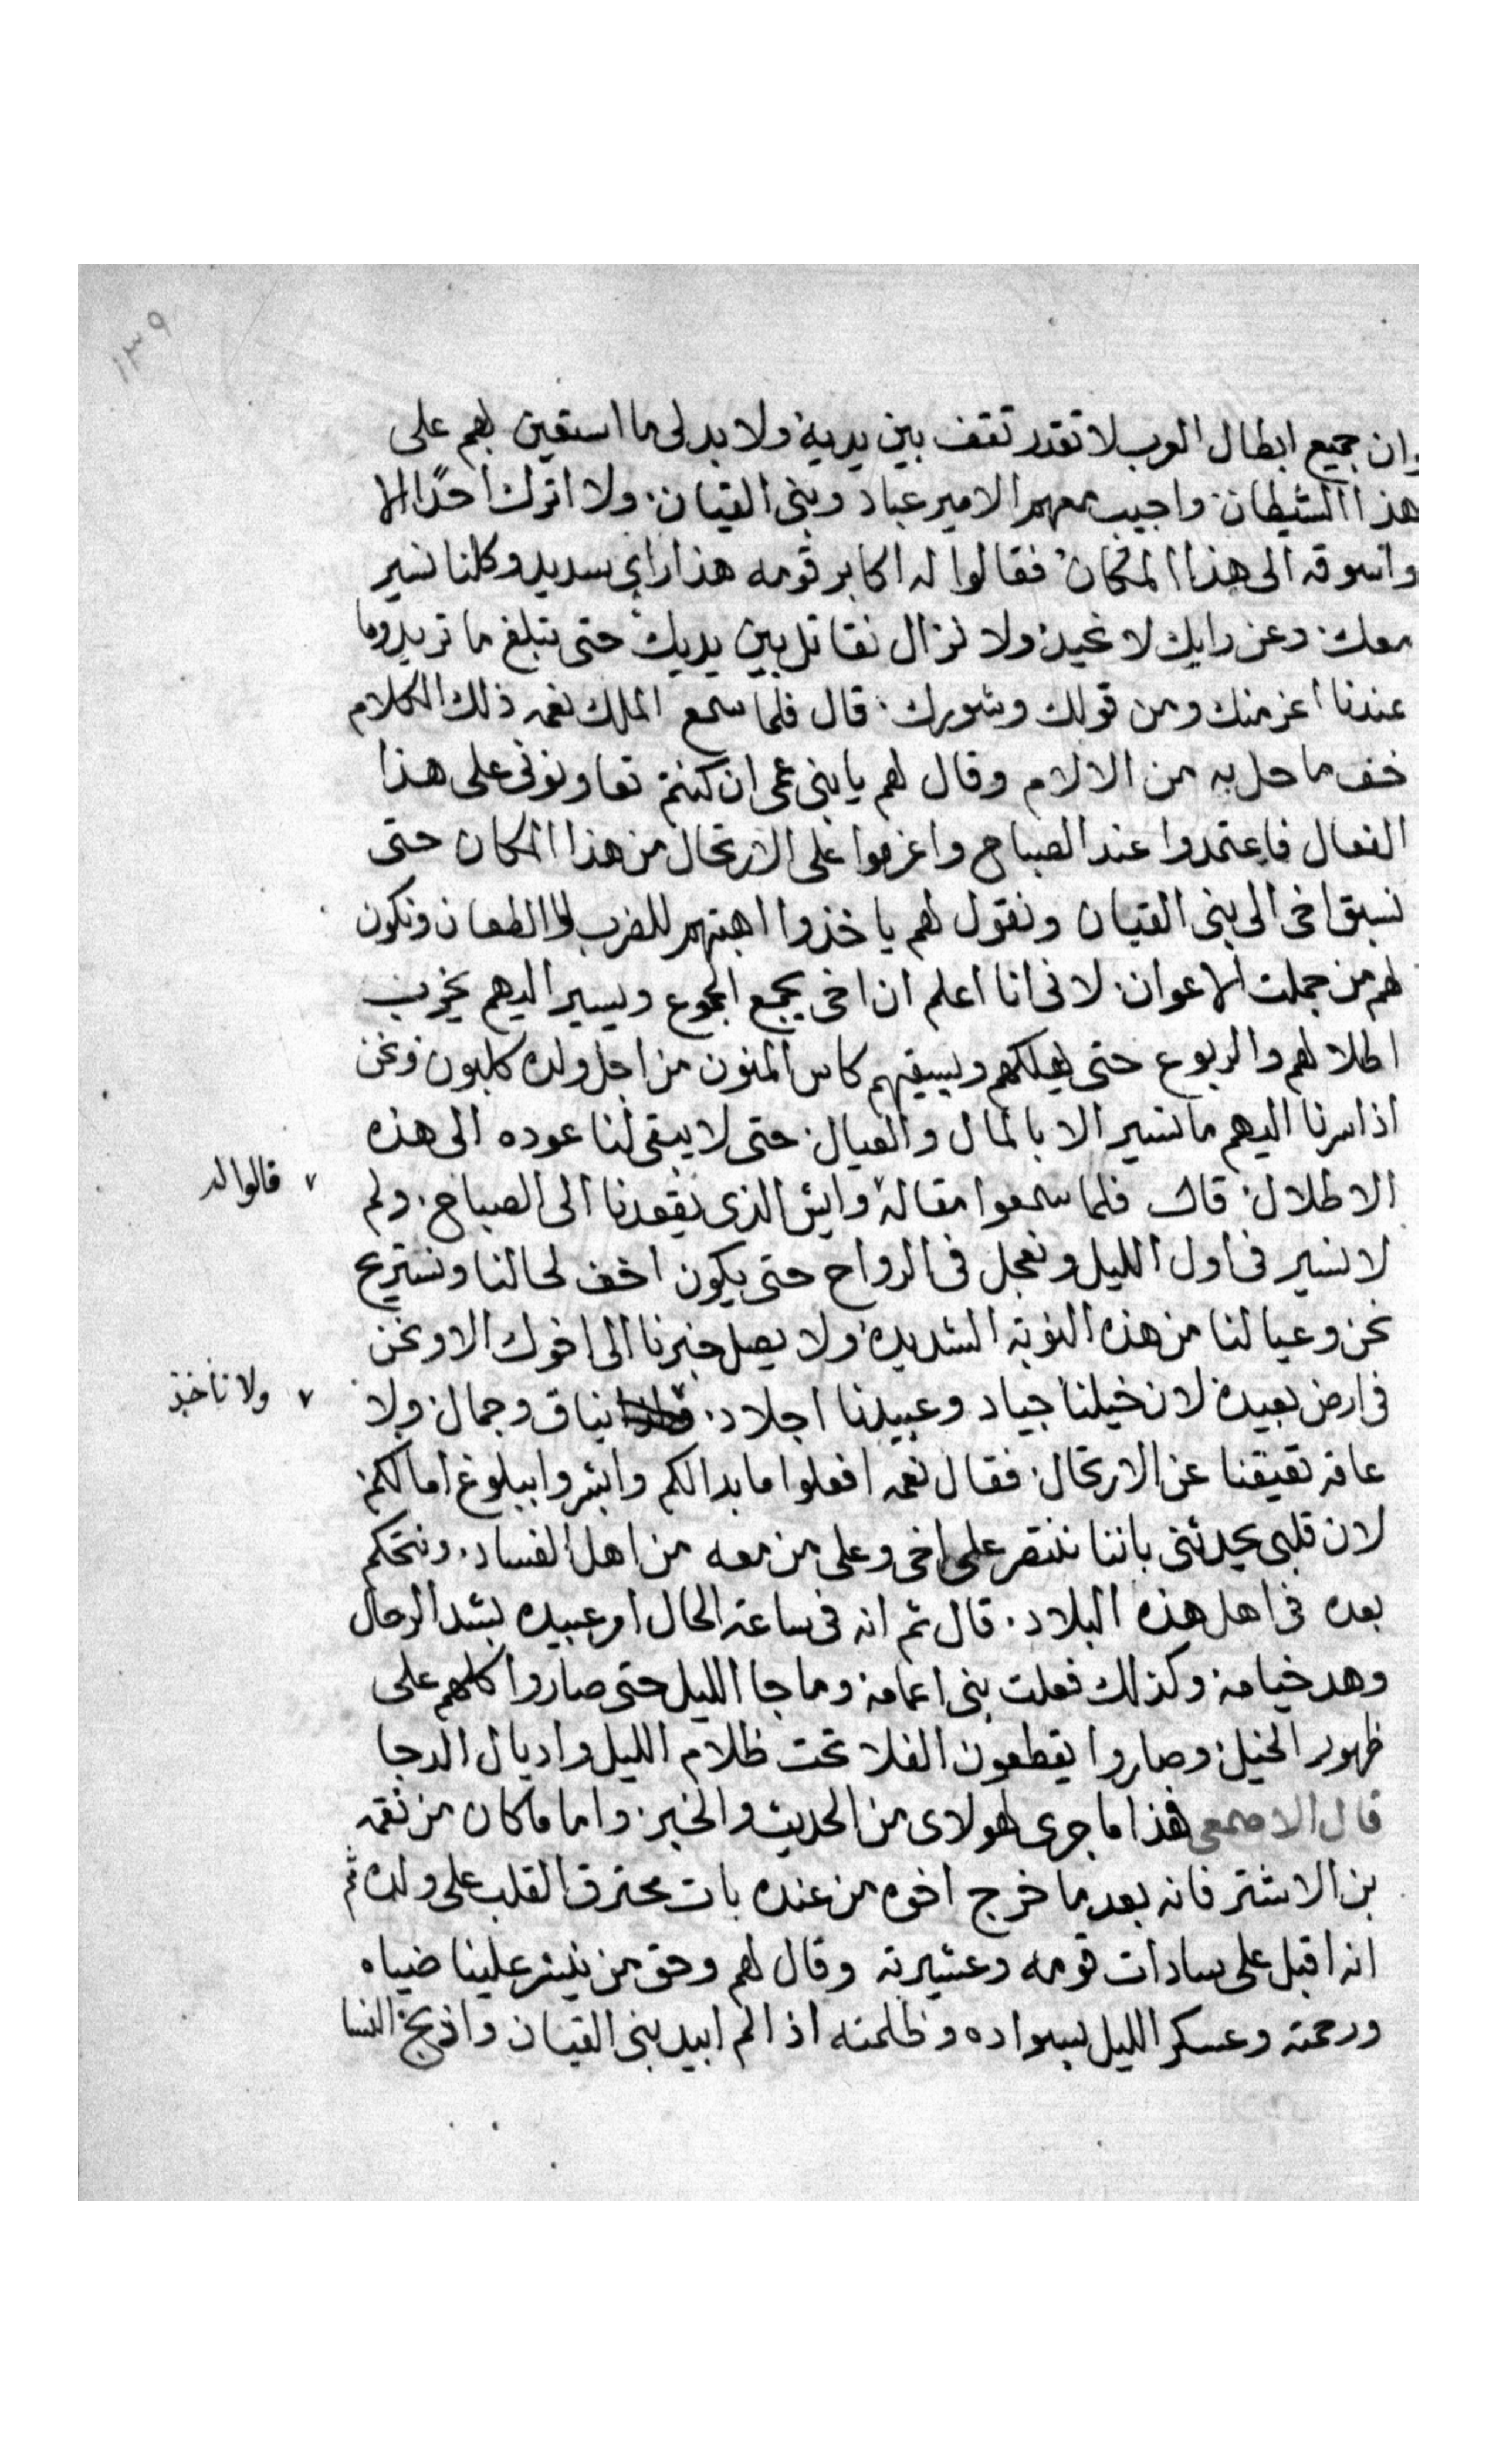 ١٣٩
وان جميع ابطال العرب لا تقدر تقف بين يديه ولا بد لى ما استعين بهم على
هذا الشيطان واجيب معهم الامير عباد وبنى القيان ولا اترك احدًا الا
واسوقه الى هذا المكان فقالوا له اكابر قومه هذا راي سديد وكلنا نسير
معك وعن رايك لا نحيد ولا نزال نقاتل بين يديك حتى تبلغ ما تريد وما
عندنا اعز منك ومن قولك وشورك قال فلما سمع الملك نعمه ذلك الكلام
خف ما حل به من الالام وقال لهم يا بنى عمى ان كنتم تعاونونى على هذا
الفعال فاعتمدوا عند الصباح واعزموا على الارتحال من هذا المكان حتى
نسبق اخى الى بنى القيان ونقول لهم ياخذوا اهبتهم للضرب والطعان ونكون
لهم من جملت الاعوان لانى انا اعلم ان اخى يجمع الجموع ويسير اليهم يخرب
اطلالهم والربوع حتى يهلكهم ويسقيهم كاس المنون من اجل ولده كلبون ونحن
اذا سرنا اليهم ما نسير الا بالمال والعيال حتى لا يبقى لنا عوده الى هذه
الاطلال قال فلما سمعوا مقاله وايش الذى يقعدنا الى الصباح ولم
٧ قالوا له
لا نسير فى اول الليل ونعجل فى الرواح حتى يكون اخف لحالنا ونستريح
نحن وعيالنا من هذه النوبة الشديدة ولا يصل خبرنا الى اخوك الا ونحن
فى ارض بعيدة لان خيلنا جياد وعبيدنا اجلاد نياق وجمال ولا
٧ ولا ناخذ
عاقه تعيقنا عن الارتحال فقال نعمه افعلوا ما بدالكم وابشروا ببلوغ امالكم
لان قلبى يحدثنى باننا ننتصر على اخى وعلى من معه من اهل الفساد ونتحكم
بعده فى اهل هذه البلاد قال ثم انه فى ساعة الحال امر عبيده بشد الرحال
وهد خيامه وكذلك فعلت بنى اعمامه وما جا الليل حتى صاروا كلهم على
ظهور الخيل وصاروا يقطعون الفلا تحت ظلام الليل واديال الدجا
قال الاصمعى هذا ما جرى لهولاى من الحديث والخبر واما ما كان من نقمه
بن الاشتر فانه بعد ما خرج اخوه من عنده بات محترق القلب على ولده ثم
انه اقبل على سادات قومه وعشيرته وقال لهم وحق من ينشر علينا ضياه
ورحمته وعسكر الليل بسواده وظلمته اذا لم ابيد بنى القيان واذبح النسا